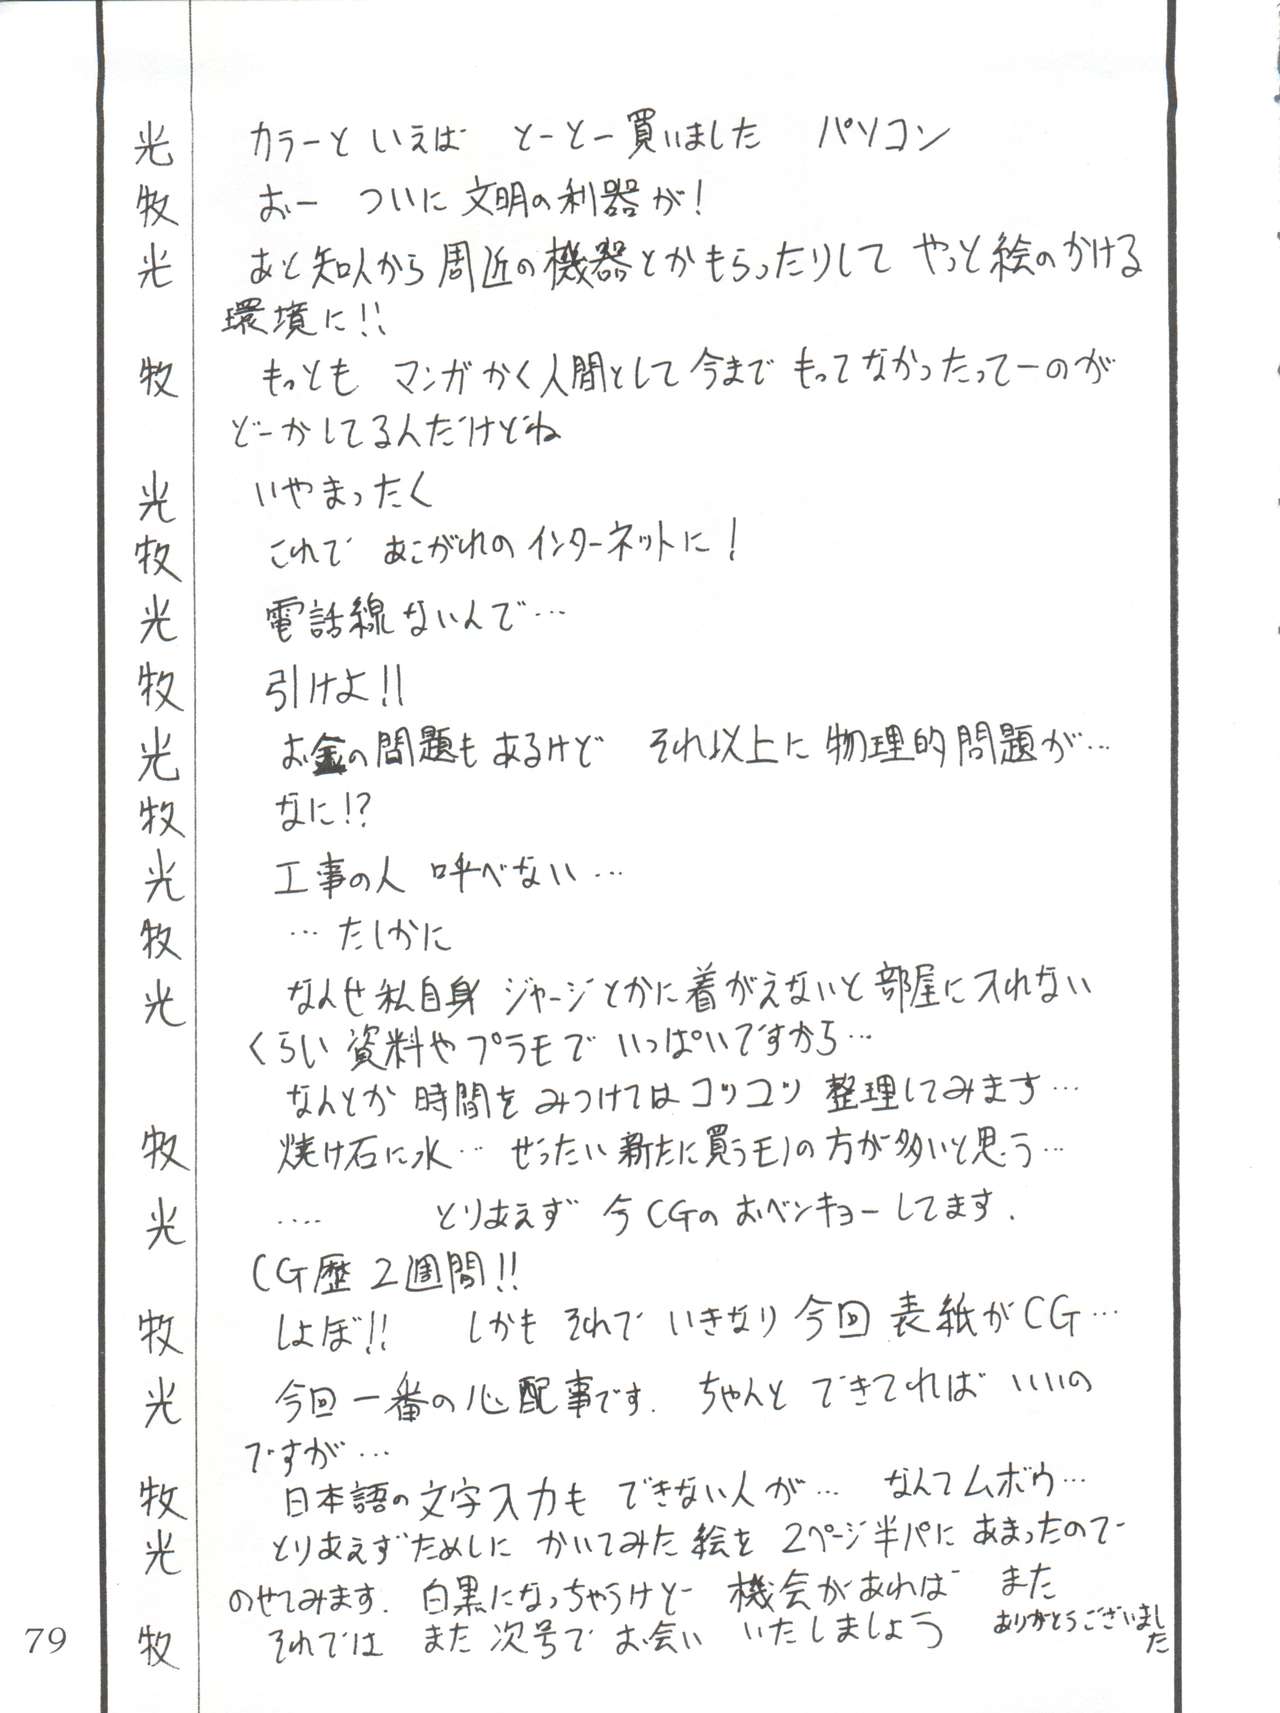 光 カラーといえば とーとー買いました パソコン
牧 おー ついに文明の利器が!
光 あと知人から周辺の機器とかもらったりして やっと絵のかける
環境に!!
牧 もっとも マンガかく人間として今まで もってなかったってーのが
どーかしてるんだけどね
光 いやまったく
牧 これで あこがれのインターネットに!
光 電話線ないんで…
牧 引けよ!!
光 お金の問題もあるけど それ以上に物理的問題が…
牧 なに!?
光 工事の人 呼べない…
牧 …たしかに
光 なんせ私自身 ジャージとかに着がえないと部屋に入れない
くらい 資料やプラモで いっぱいですから…
なんとか 時間をみつけてはコツコツ 整理してみます…
牧 焼け石に水… ぜったい新たに買うモノの方が多いと思う…
光 …. とりあえず 今CGのおベンキョーしてます.
CG歴2週間!!
牧 しょぼ!! しかも それで いきなり今回 表紙がCG…
光 今回一番の心配事です. ちゃんと できてれば いいの
ですが…
牧 日本語の文字入力も できない人が… なんてムボウ…
光 とりあえずためしに かいてみた絵を 2ページ半パにあまったので
のせてみます. 白黒になっちゃうけどー 機会があれば また
牧 それでは また次号で お会い いたしましょう ありがとうございまし
た
79